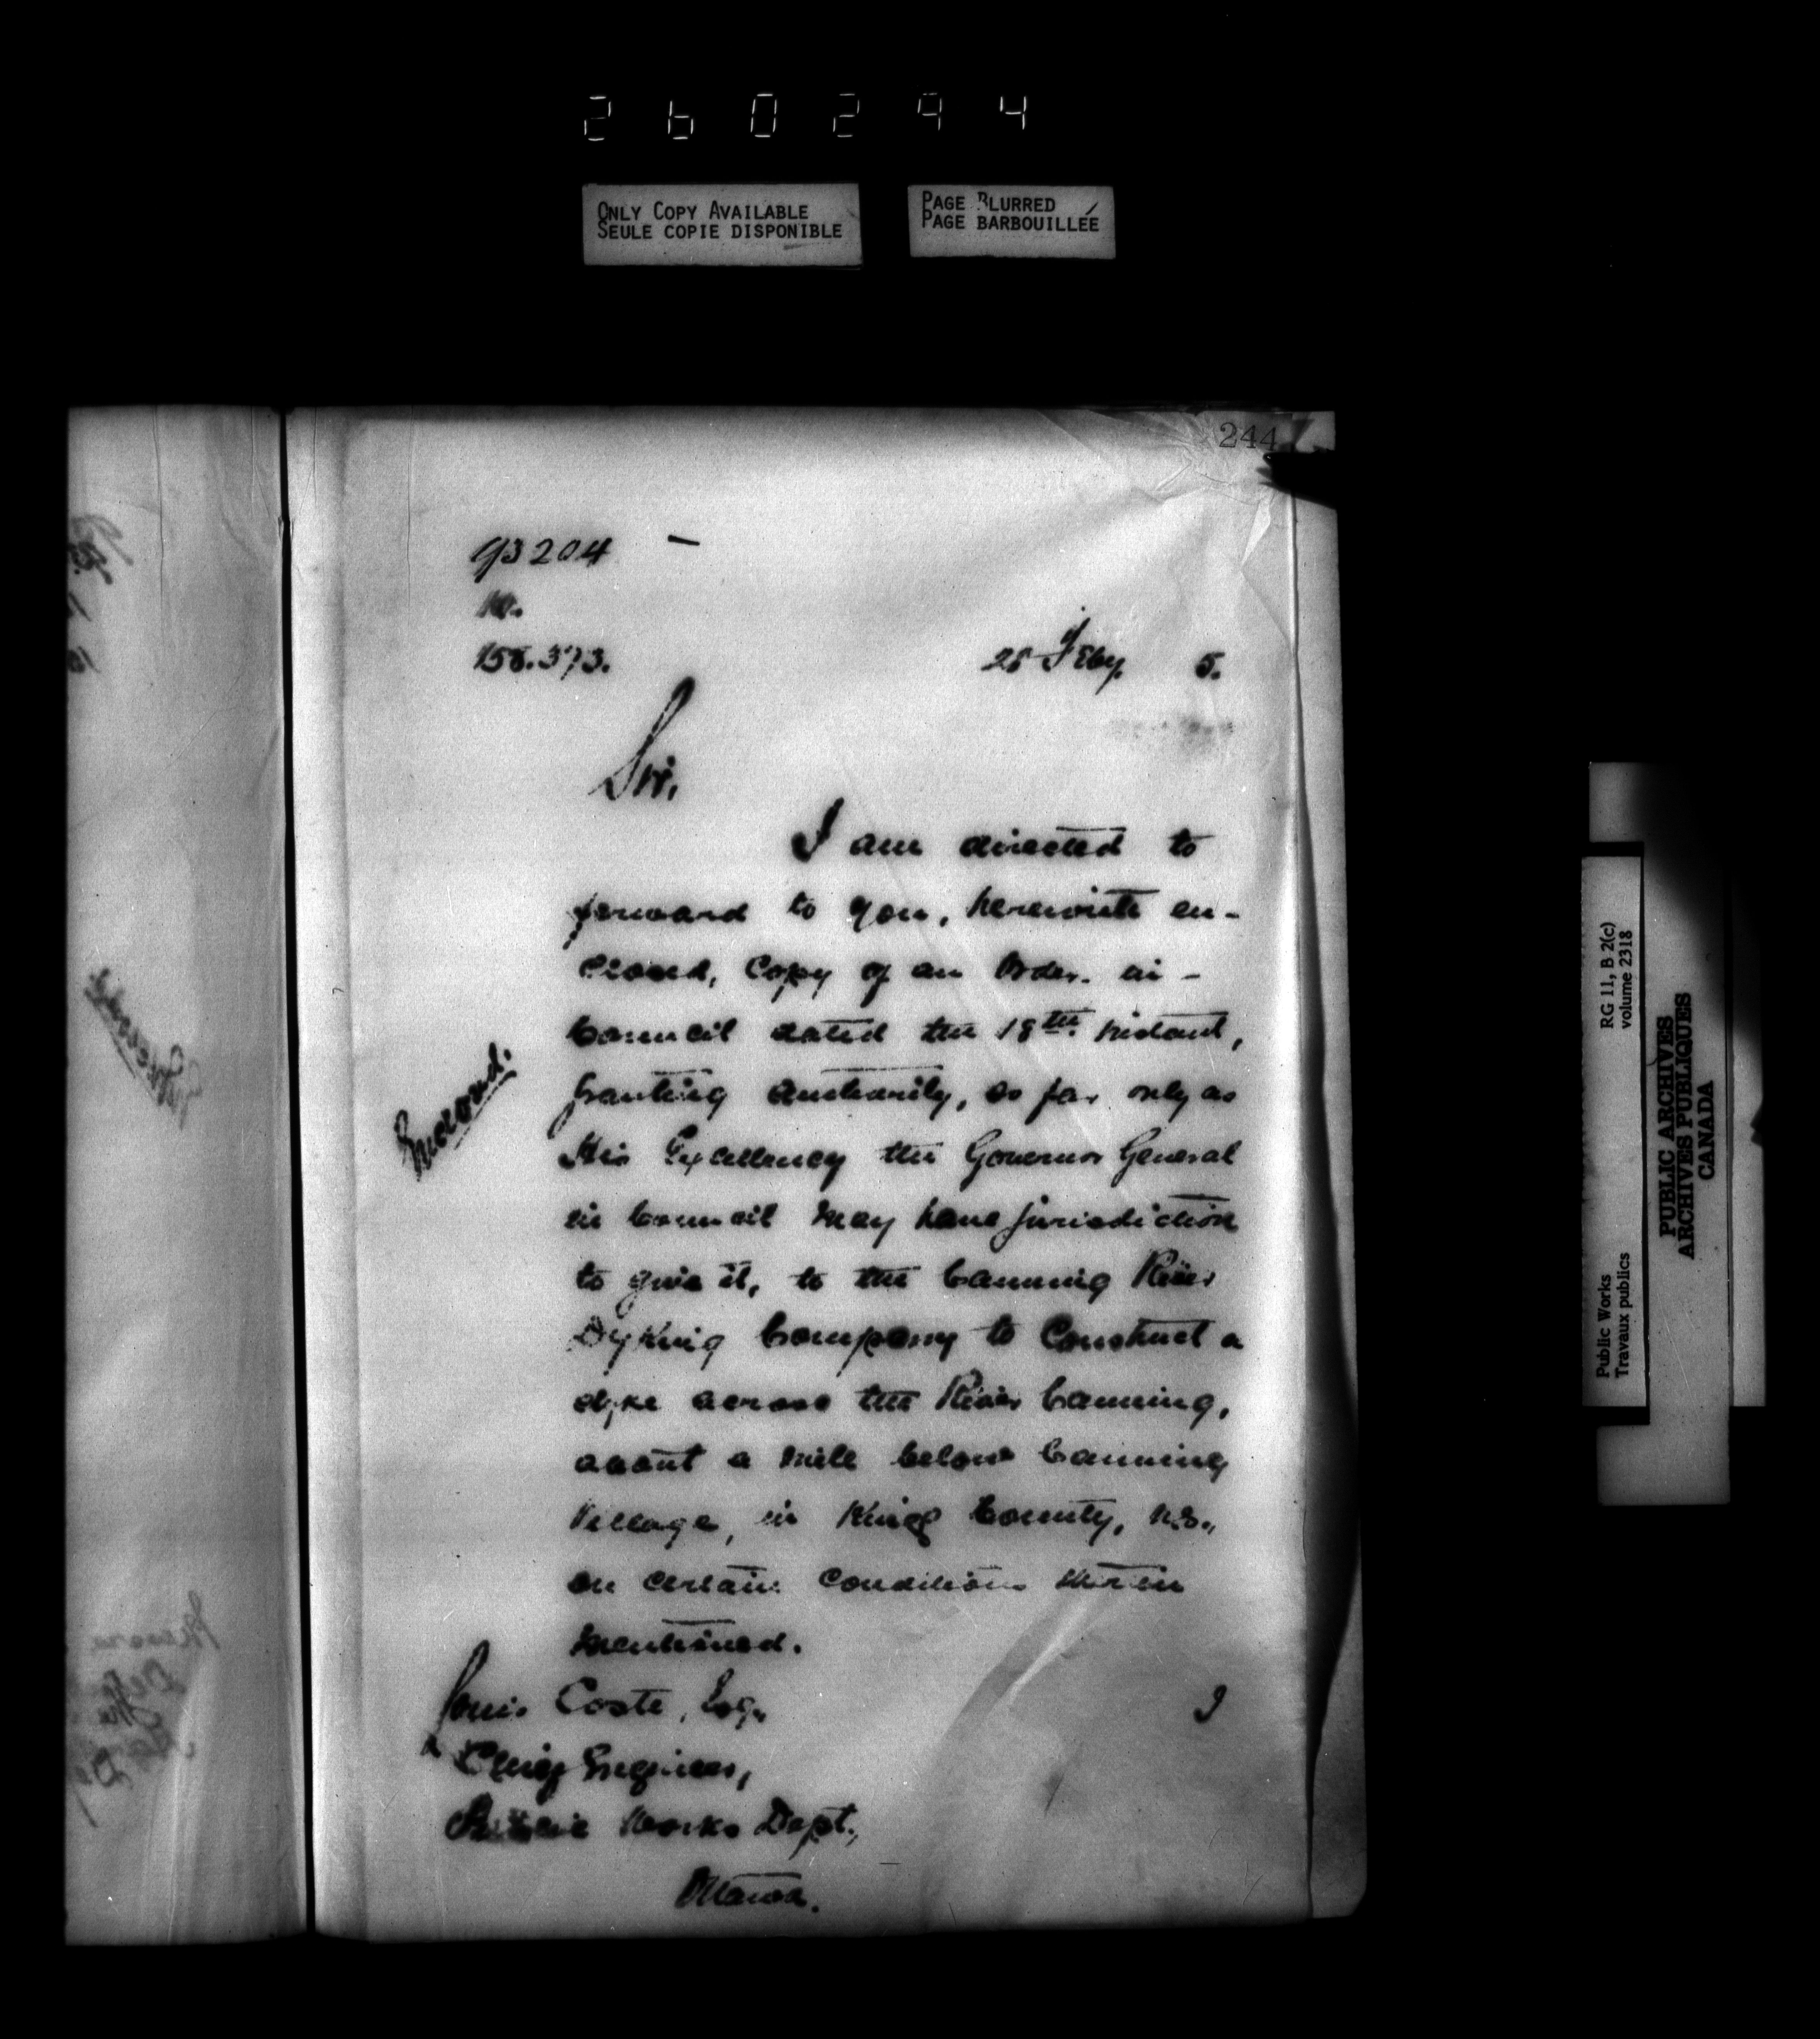 260294
ONLY COPY AVAILABLE
SEULE COPIE DISPONIBLE
PAGE BLURRED
PAGE BARBOUILLÉE
244
93204
158.373.
Feby. 5.
Sir,
I am directed to
forward to you, herewith en-
closed, Copy of an Order in
Council dated the 18th. instant,
granting authority, so far only as
His Excellency the Governor General
in Council may have jurisdiction
to give it, to the Canning River
Dyking Company to Construct a
dyke across the River Canning,
about a mile below Canning
Village, in Kings County, N.S.,
on certain conditions therein
mentioned.
Louis Coste, Esq.,
Chief Engineer,
Public Works Dept.,
Ottawa.
I
Public Works
Travaux publics
RG 11, B 2(c)
volume 2318
PUBLIC ARCHIVES
ARCHIVES PUBLIQUES
CANADA